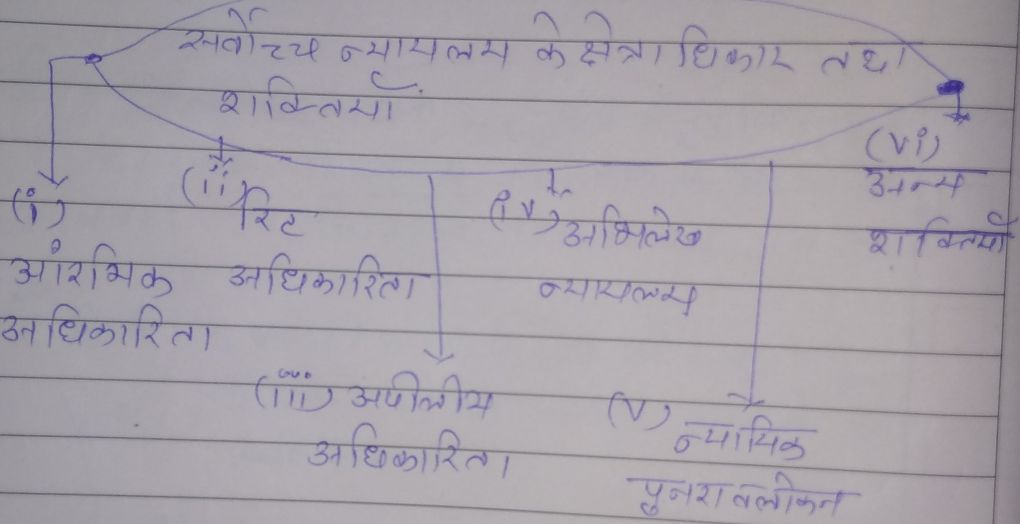 सर्वोच्च न्यायलय के क्षेत्राधिकार तथा
शक्तियाँ
(i)
आंरभिक
अधिकारिता
(ii)
रिट
अधिकारिता
(iii) अपीलीय
अधिकारिता
(iv) अभिलेख
न्यायलय
(v) न्यायिक
पुनरावलोकन
(vi)
अन्य
शक्तियाँ